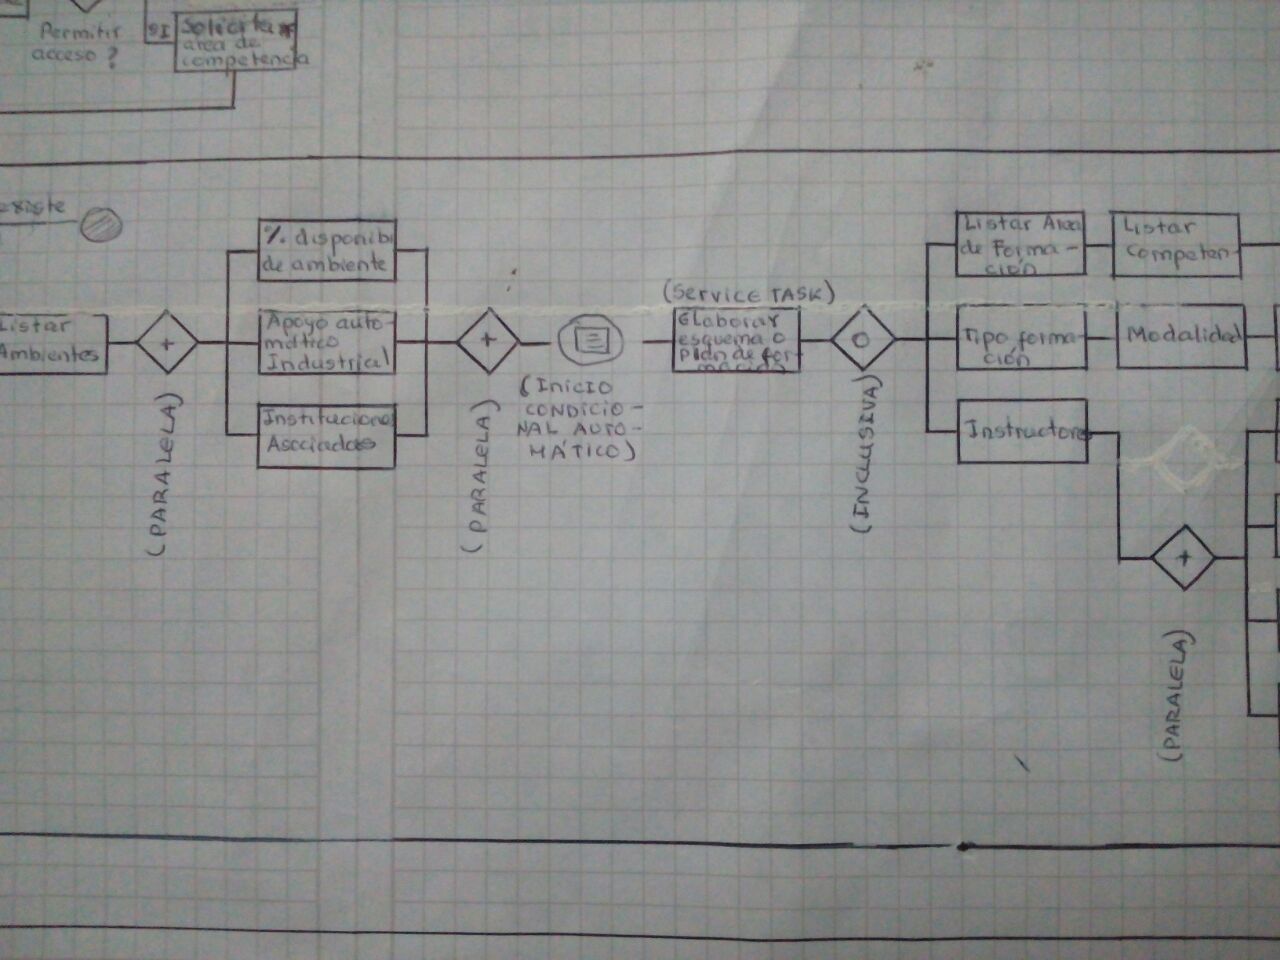 Permitir
acceso?
SI
Solicita
area de
competencia
existe
Listar
Ambientes
+
(PARALELA)
% disponibi
de ambiente
Apoyo auto-
mático
Industrial
Instituciones
Asociadas
+
(PARALELA)
(INICIO
CONDICIO-
NAL AUTO-
MÁTICO)
(SERVICE TASK)
Elaborar
esquema o
plan de for-
mación
(INCLUSIVA)
Listar Area
de Forma-
ción
Listar
Competen-
Tipo forma-
ción
Modalidad
Instructores
+
(PARALELA)